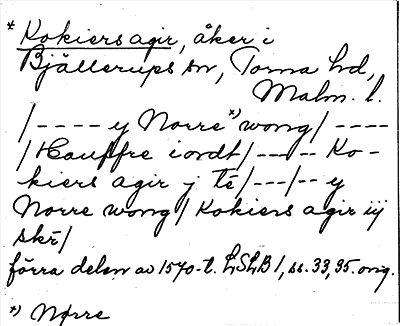 * Kokiers agir, åker i
Bjällerups sn, Torna hd,
Malm. l.
/---- y Norre *) wong/ ----
/Hauffre iordt/ ---- Ko-
kiers agir j tē/---/-- y
Norre wong/ Kokiers agir iij
skr̄/
förra delen av 1570-t. LSLB 1, ss. 33, 35. orig.
*) Nørre